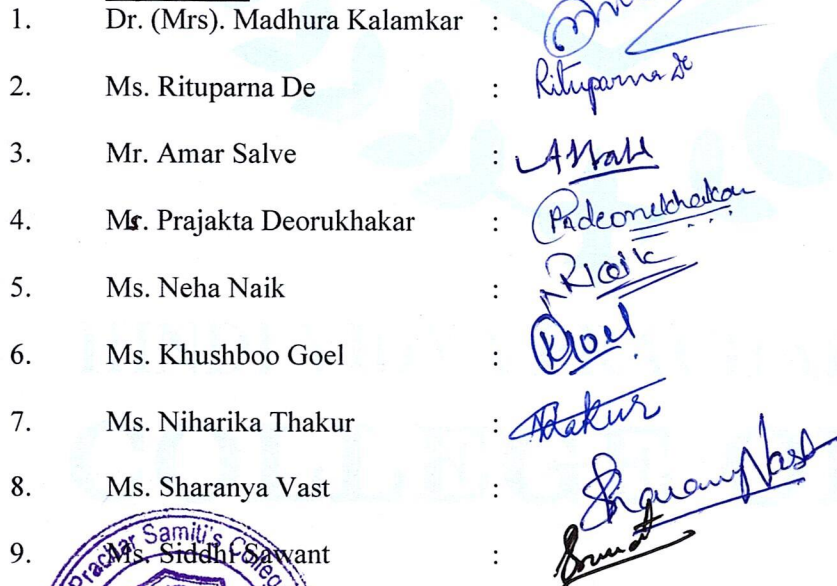 1. Dr. (Mrs). Madhura Kalamkar :
2. Ms. Rituparna De : Rituparna De
3. Mr. Amar Salve :
4. Ms. Prajakta Deorukhakar : PADeorukhakar
5. Ms. Neha Naik :
6. Ms. Khushboo Goel : KGoel
7. Ms. Niharika Thakur : Thakur
8. Ms. Sharanya Vast : Sharanya Vast
9. Ms. Siddhi Sawant :
Prachar Samiti's College
COLLEGE